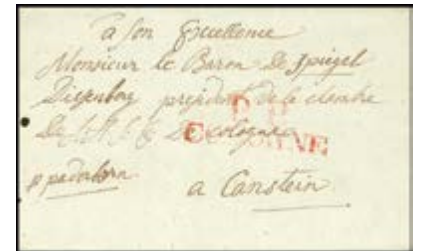 a son Excellence
Monsieur le Baron de Spiegel
Diesenberg president de la chambre
De S. A. S. E. De Cologne
p paderborn
a Canstein
COLOGNE